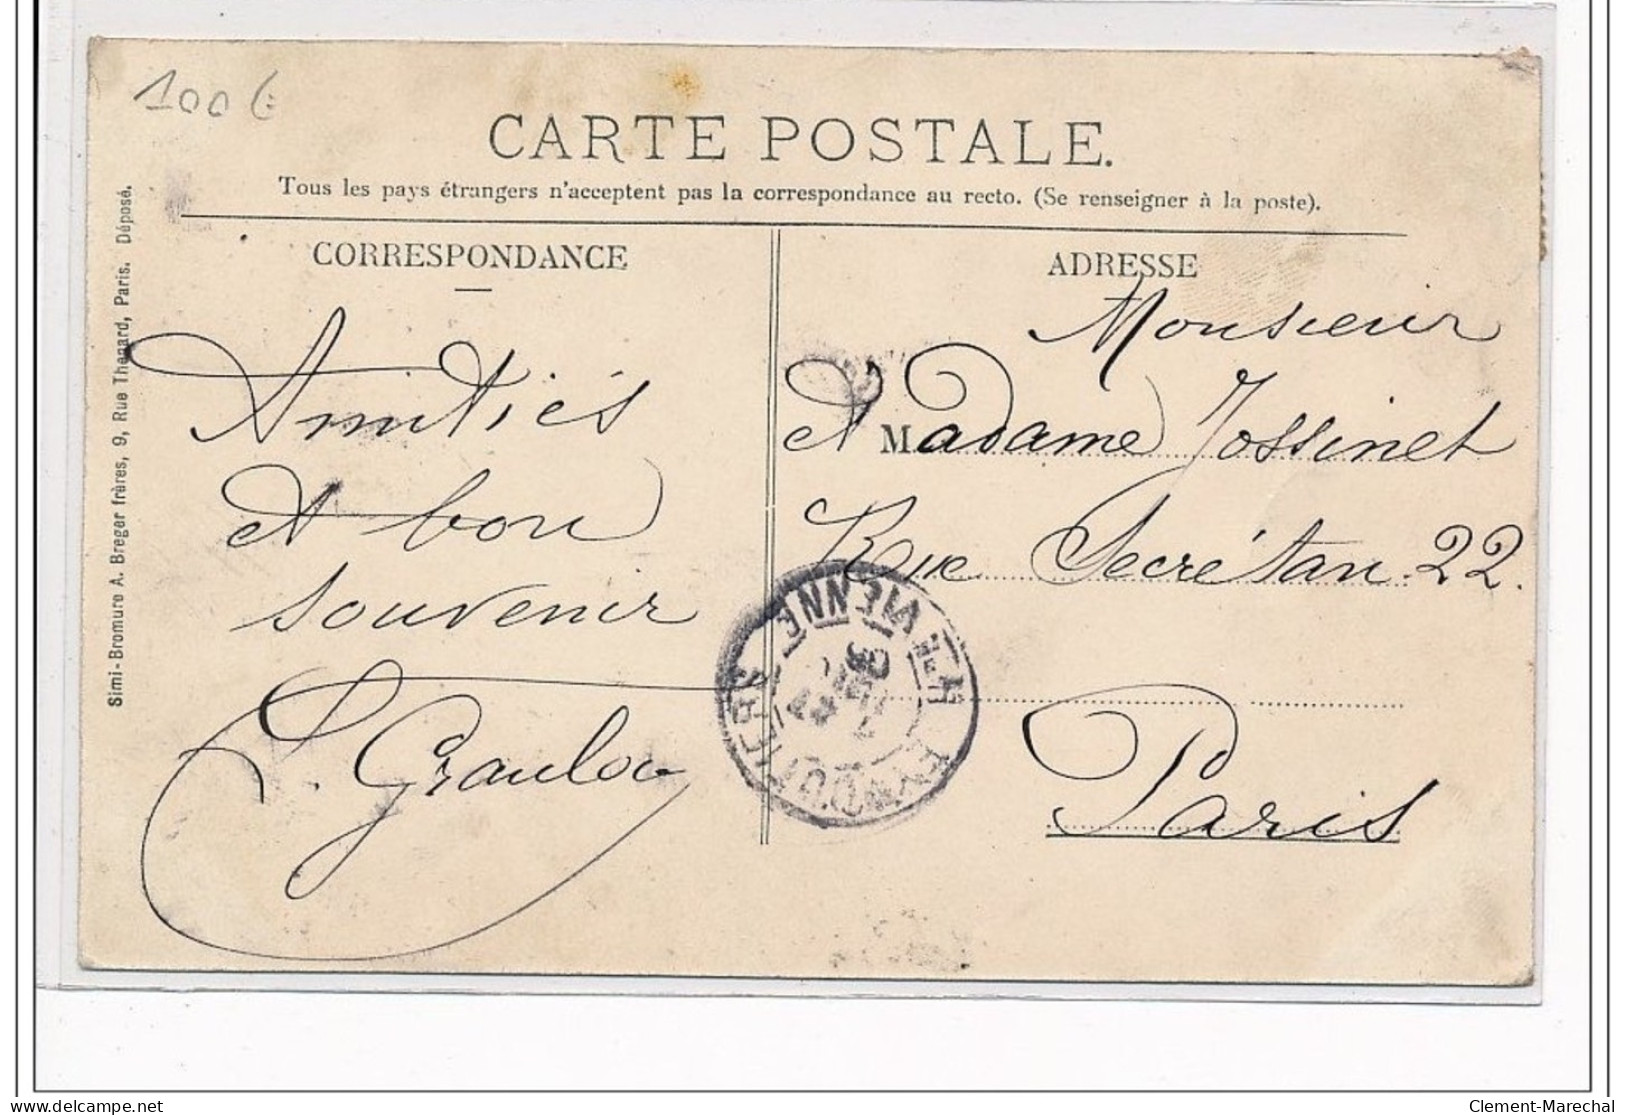 100€
CARTE POSTALE.
Tous les pays étrangers n'acceptent pas la correspondance au recto. (Se renseigner à la poste).
Simi-Bromure A. Breger frères, 9, Rue Thenard, Paris. Déposé.
CORRESPONDANCE
Amitiés
et bon
souvenir
ADRESSE
Monsieur
et Madame Jossinet
Rue Secrétan 22.
Paris
EYMOUTIERS
HTE VIENNE
delcampe.net
Clement-Marechal